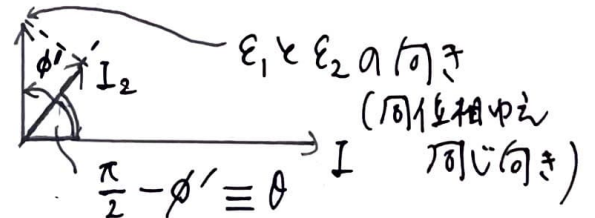 φ'
I₂
ε₁とε₂の向き
(同位相ゆえ
同じ向き)
I
π/2 - φ' ≡ θ